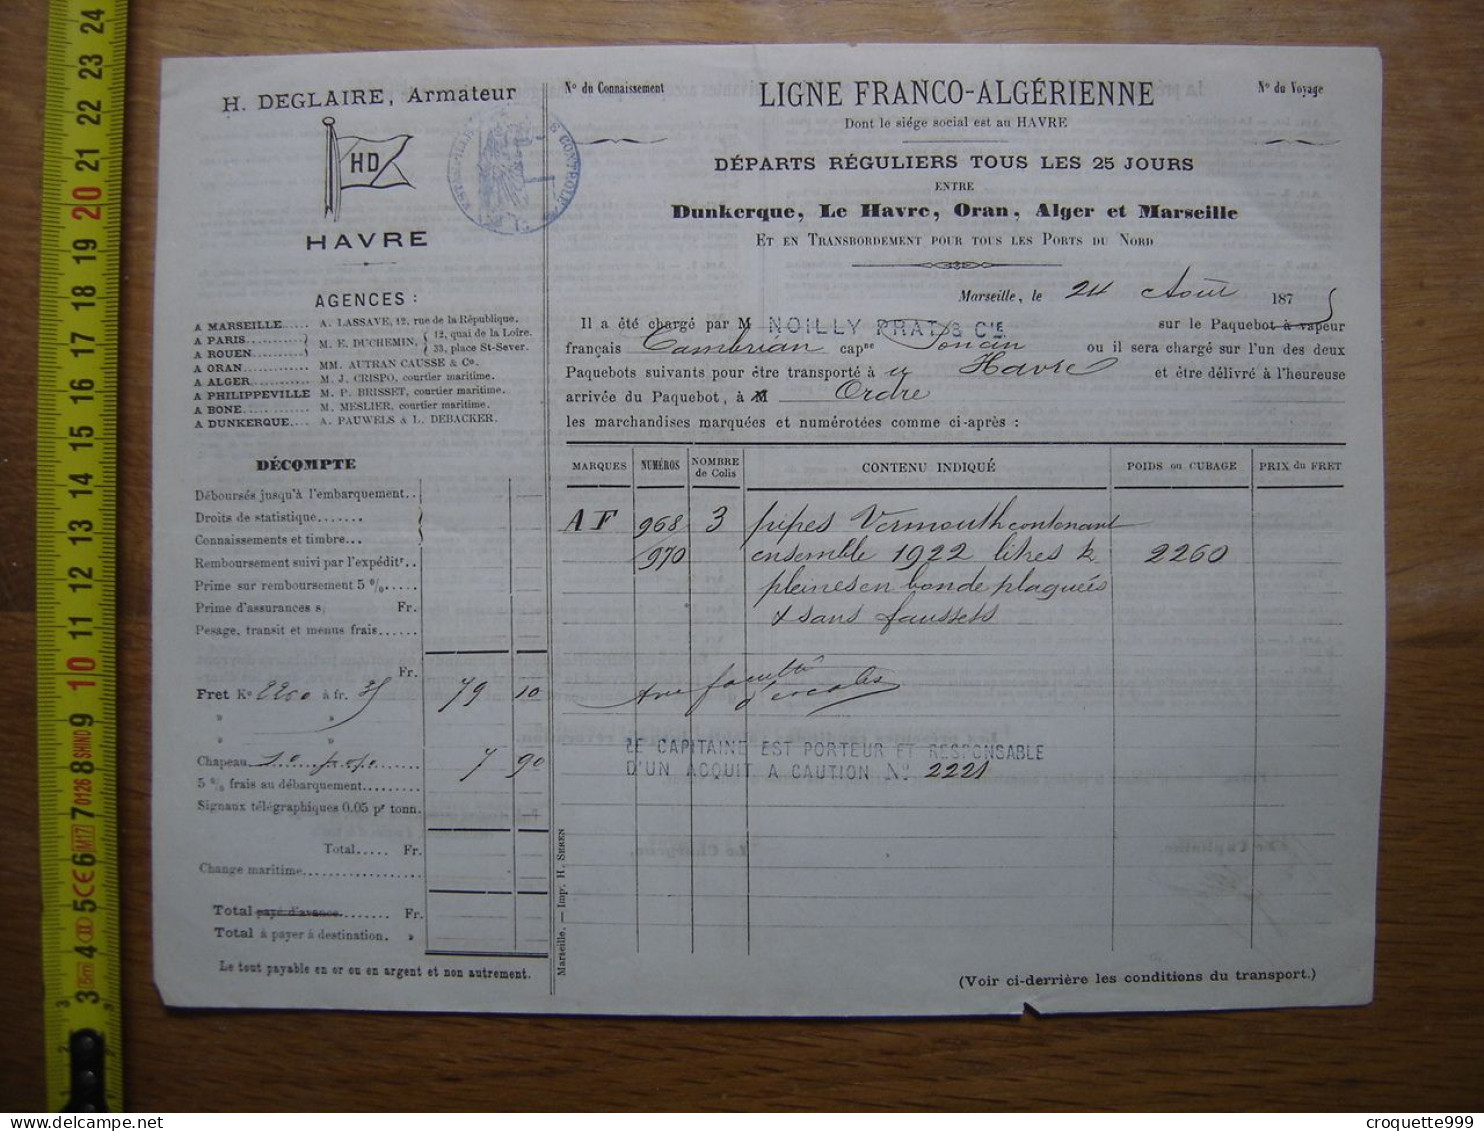 H. DEGLAIRE, Armateur
HD
HAVRE
AGENCES :
A MARSEILLE..... A. LASSAVE, 12, rue de la République.
A PARIS........... } M. E. DUCHEMIN, { 12, quai de la Loire.
A ROUEN.......... 33, place St-Sever.
A ORAN............ MM. AUTRAN CAUSSE & Co.
A ALGER.......... M. J. CRISPO, courtier maritime.
A PHILIPPEVILLE M. P. BRISSET, courtier maritime.
A BONE............ M. MESLIER, courtier maritime.
A DUNKERQUE.... A. PAUWELS & L. DEBACKER.
DÉCOMPTE
Déboursés jusqu'à l'embarquement..
Droits de statistique.......
Connaissements et timbre...
Remboursement suivi par l'expédit r.
Prime sur remboursement 5 %.
Prime d'assurances s/ Fr.
Pesage, transit et menus frais......
Fr.
Fret K° 2260 à fr. 35 79 10
" "
"
Chapeau 10 fr. 0/0 7 90
5 % frais au débarquement.........
Signaux télégraphiques 0.05 pr tonn.
Total..... Fr.
Change maritime..................
Total payé d'avance........ Fr.
Total à payer à destination. "
Le tout payable en or ou en argent et non autrement.
N° du Connaissement
LIGNE FRANCO-ALGÉRIENNE
N° du Voyage
Dont le siége social est au HAVRE
DÉPARTS RÉGULIERS TOUS LES 25 JOURS
ENTRE
Dunkerque, Le Havre, Oran, Alger et Marseille
ET EN TRANSBORDEMENT POUR TOUS LES PORTS DU NORD
Marseille, le 24 Août 1875
Il a été chargé par M NOILLY PRAT & CIE sur le Paquebot à vapeur
français Cambrian capne ou il sera chargé sur l'un des deux
Paquebots suivants pour être transporté à Havre et être délivré à l'heureuse
arrivée du Paquebot, à M Ordre
les marchandises marquées et numérotées comme ci-après :
MARQUES NUMÉROS NOMBRE de Colis CONTENU INDIQUÉ POIDS ou CUBAGE PRIX du FRET
AF 968 3 pipes Vermouth contenant
/970 ensemble 1922 litres & 2260
pleines en bonde plaquées
& sans faussets
Avec faculté
d'escales
LE CAPITAINE EST PORTEUR ET RESPONSABLE
D'UN ACQUIT A CAUTION No 2221
Marseille. — Imp. H. SEREN
(Voir ci-derrière les conditions du transport.)
24 23 22 21 20 19 18 17 16 15 14 13 12 11 10 9 8 7 6 5 4 3
SHINO 0126 M17 CE
croquette999